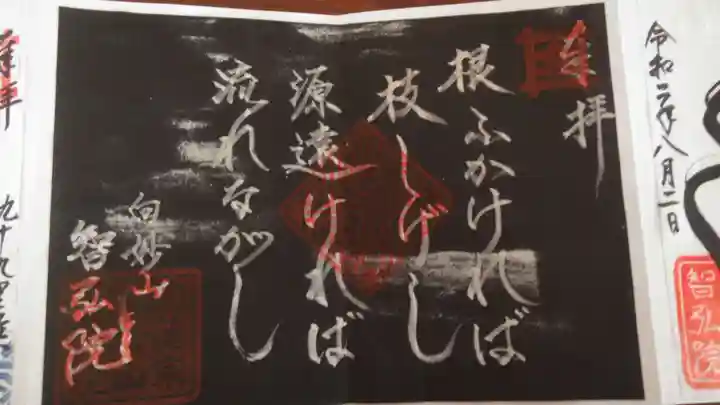 令和二年八月二日
智弘院
奉拝
根ふかければ
枝しげし
源遠ければ
流れながし
白妙山
智弘院
奉拝